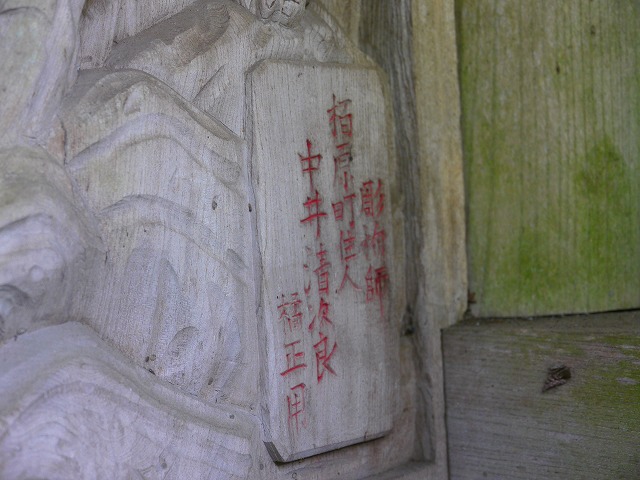 彫物師
栢原町住人
中井清次良
橘正用